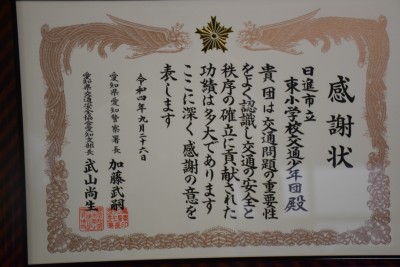 感謝状
日進市立
東小学校交通少年団殿
貴団は交通問題の重要性
をよく認識し交通の安全と
秩序の確立に貢献された
功績は多大であります
ここに深く感謝の意を
表します
令和四年九月二十六日
愛知県愛知警察署長 加藤武嗣
愛知県交通安全協会愛知支部長 武山尚生